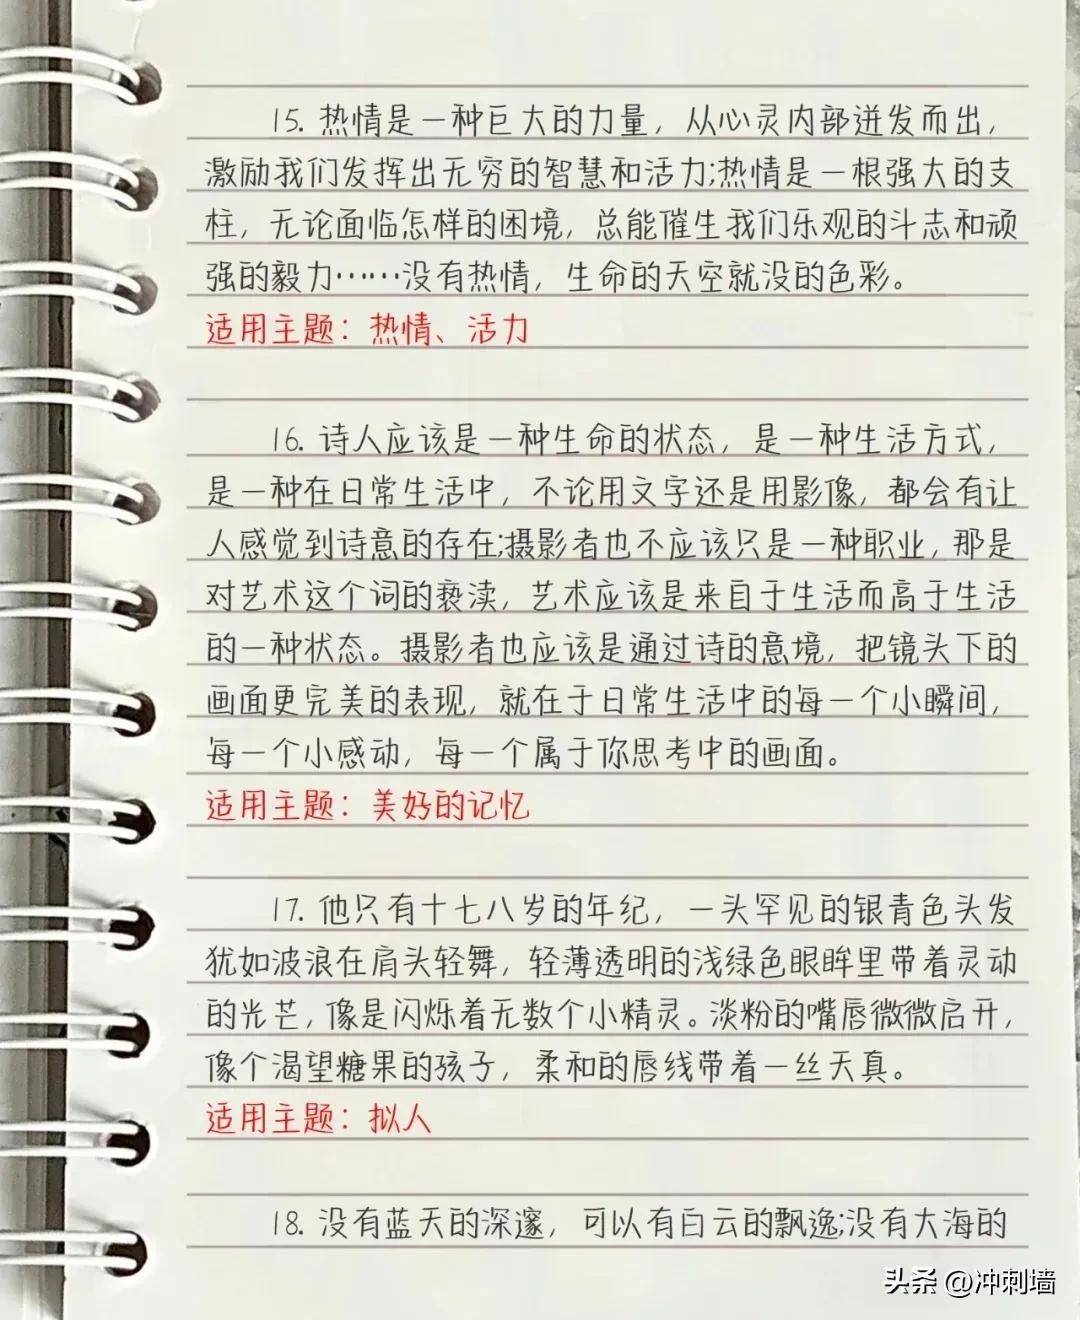 15. 热情是一种巨大的力量，从心灵内部迸发而出，
激励我们发挥出无穷的智慧和活力;热情是一根强大的支
柱，无论面临怎样的困境，总能催生我们乐观的斗志和顽
强的毅力……没有热情，生命的天空就没的色彩。
适用主题：热情、活力
16. 诗人应该是一种生命的状态，是一种生活方式，
是一种在日常生活中，不论用文字还是用影像，都会有让
人感觉到诗意的存在;摄影者也不应该只是一种职业，那是
对艺术这个词的亵渎，艺术应该是来自于生活而高于生活
的一种状态。摄影者也应该是通过诗的意境，把镜头下的
画面更完美的表现，就在于日常生活中的每一个小瞬间，
每一个小感动，每一个属于你思考中的画面。
适用主题：美好的记忆
17. 他只有十七八岁的年纪，一头罕见的银青色头发
犹如波浪在肩头轻舞，轻薄透明的浅绿色眼眸里带着灵动
的光芒，像是闪烁着无数个小精灵。淡粉的嘴唇微微启开，
像个渴望糖果的孩子，柔和的唇线带着一丝天真。
适用主题：拟人
18. 没有蓝天的深邃，可以有白云的飘逸;没有大海的
头条 @冲刺墙